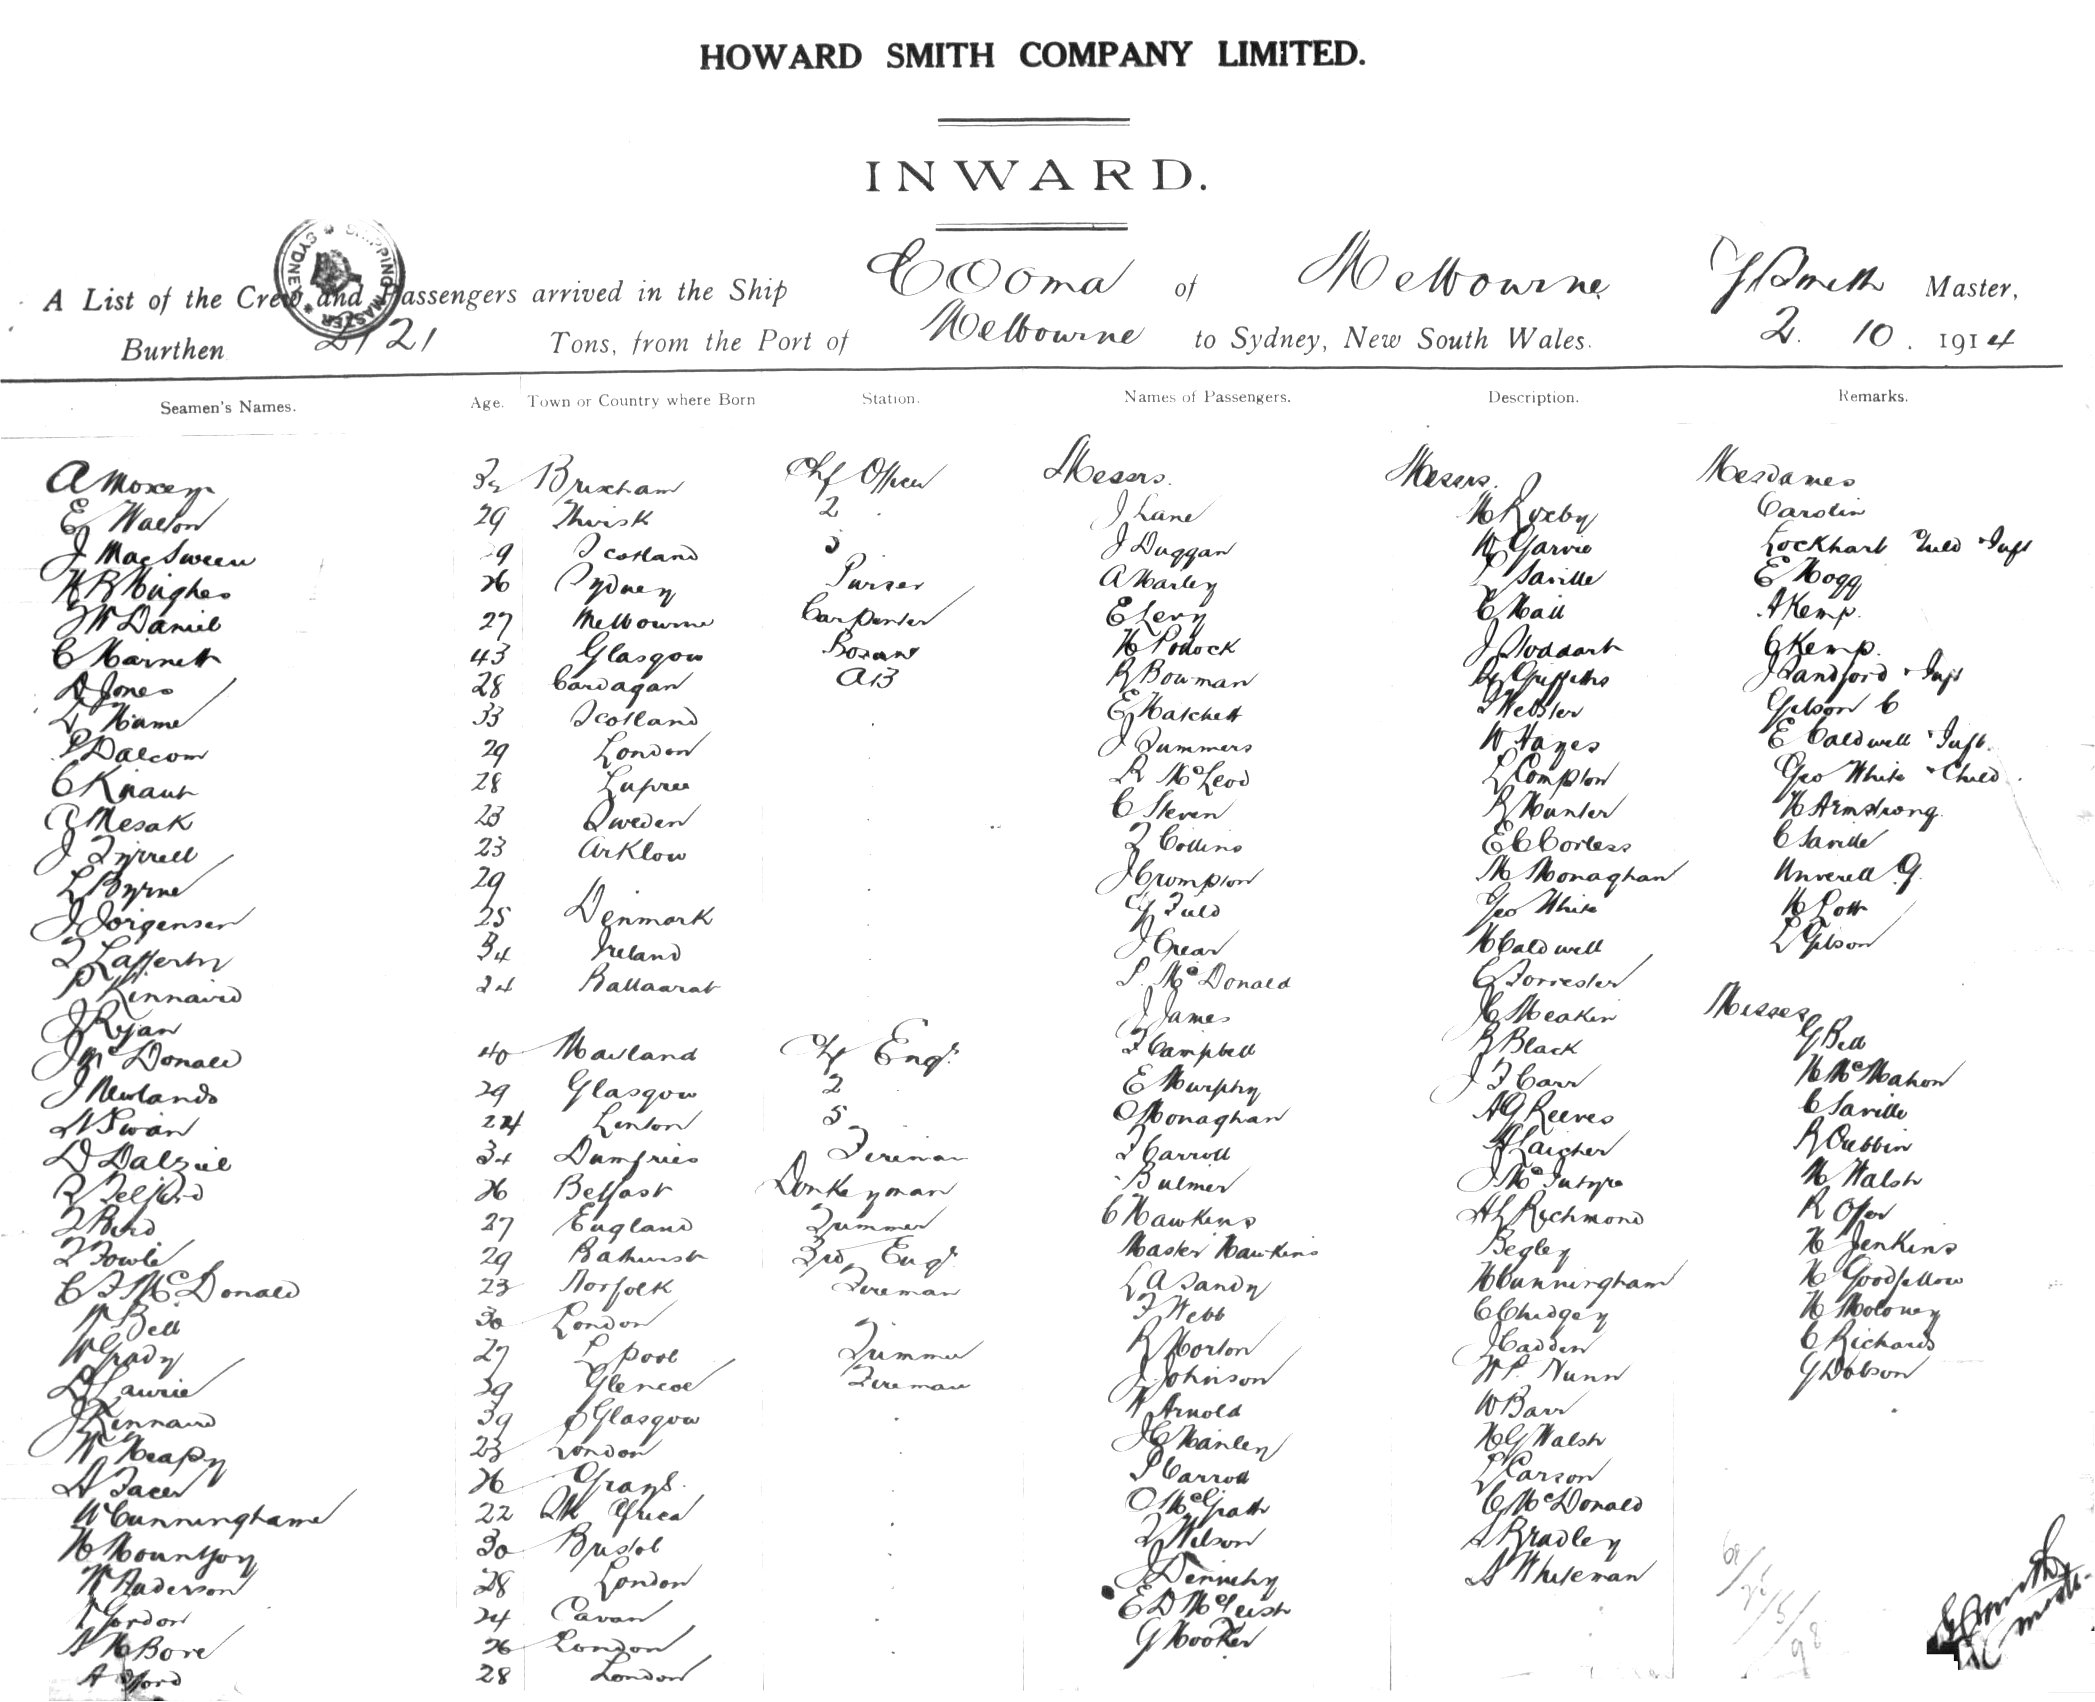 HOWARD SMITH COMPANY LIMITED.
INWARD.
SHIPPING MASTER * SYDNEY *
A List of the Crew and Passengers arrived in the Ship Cooma of Melbourne Master,
Burthen 2121 Tons, from the Port of Melbourne to Sydney, New South Wales. 2. 10. 1914
Seamen's Names. Age. Town or Country where Born Station. Names of Passengers. Description. Remarks.
Messrs. Messrs. Mesdames
A Moxey Brixham Chf Officer
E Walton 29 Thirsk 2 J Lane H Roxby Carolin
J MacSween 29 Scotland 3 J Duggan W Garvie Lockhart
H R Hughes 26 Sydney Purser A Harley Saville E Hogg
W Daniel 27 Melbourne Carpenter E Levy C Hall A Kemp.
C Harnett 43 Glasgow H Podock J Stoddart C Kemp.
D Jones 28 Cardagan AB R Bowman Griffiths J Sandford + Inft
Hume 33 Scotland E Hatchett Webster Gibson C
P Dalcom 29 London J Summers W Hayes E Caldwell + Inft.
C Knaut 28 R McLeod L Compton Geo White + Child
A Mesak 23 Sweden C Steven R Hunter H Armstrong
J Tyrrell 23 Arklow F Collins E C Corless C Saville
L Byrne 29 J Crompton M Monaghan Unverell G.
J Jorgensen 25 Denmark G Fuld Geo White H Lott
F Lafferty 34 Ireland J Crear H Caldwell L Gibson
P Kinnaird 24 Ballaarat S. McDonald C Forrester
J Ryan J James C Meakin Misses
J McDonald 40 Maitland Chf Engr. F Campbell R Black G Bell
J Newlands 29 Glasgow 2 E Murphy J F Carr H McMahon
N Swan 24 Linton O Monaghan A G Reeves C Saville
D Dalziel 34 Dumfries Fireman F Carroll R Cubbin
R Telford 26 Belfast Donkeyman Bulmer J McIntyre H Walsh
F Bird 27 England Trimmer C Hawkins A L Richmond R
F Fowle 29 Bathurst 3rd Engr. Master Hawkins Begley H Jenkins
C F McDonald 23 Norfolk Fireman L A Sandy H Cunningham H Goodfellow
W Bell 30 London F Webb C Chidgey H Moloney
W Grady 27 Lpool Trimmer R Horton J Cadden C Richards
D Laurie 39 Glencoe Fireman J Johnson W P. Nunn G Dobson
J Kinnaird 39 Glasgow W Arnold W Barr
W Heapy 23 London J C Hanley H G Walsh
A Facer 26 Grays. P Carroll L Carson
W Cunninghame 22 Sth Africa O McGrath C McDonald
H Mountjoy 30 Bristol F Wilson A Bradley
W Anderson 28 London J Dennehy A Whiteman
Gordon 24 Cavan E D McLeish
A H Bore 26 London G Hooker
A Ford 28 London